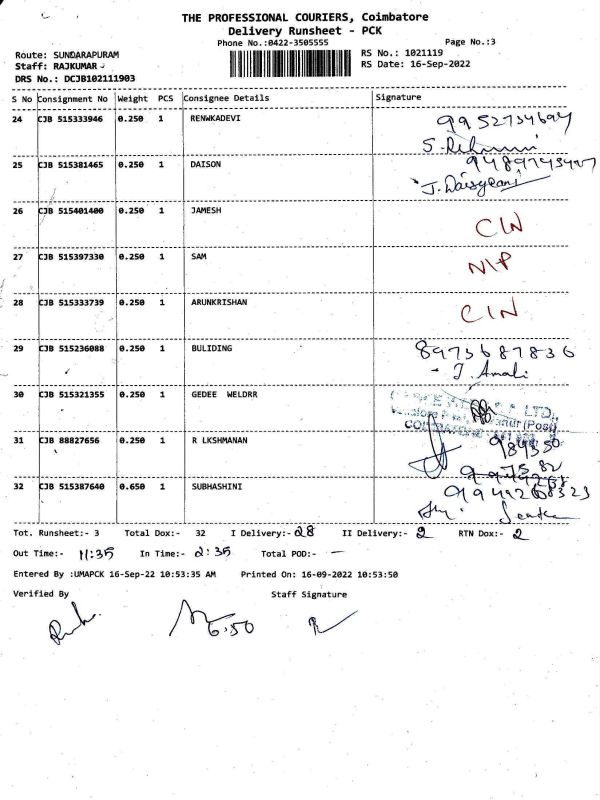 THE PROFESSIONAL COURIERS, Coimbatore
Delivery Runsheet - PCK
Phone No.:0422-3505555
Page No.:3
Route: SUNDARAPURAM
RS No.: 1021119
Staff: RAJKUMAR
RS Date: 16-Sep-2022
DRS No.: DCJB102111903
S No Consignment No Weight PCS Consignee Details Signature
24 CJB 515333946 0.250 1 RENWKADEVI 9952734694
25 CJB 515381465 0.250 1 DAISON
26 CJB 515401400 0.250 1 JAMESH CIN
27 CJB 515397330 0.250 1 SAM NIP
28 CJB 515333739 0.250 1 ARUNKRISHAN CIN
29 CJB 515236088 0.250 1 BULIDING 8973687836
J. Amali
30 CJB 515321355 0.250 1 GEDEE WELDRR
LTD.,
(Post)
31 CJB 88827656 0.250 1 R LKSHMANAN
32 CJB 515387640 0.650 1 SUBHASHINI
Tot. Runsheet:- 3 Total Dox:- 32 I Delivery:- 28 II Delivery:- 2 RTN Dox:- 2
Out Time:- 11:35 In Time:- 2:35 Total POD:- —
Entered By :UMAPCK 16-Sep-22 10:53:35 AM Printed On: 16-09-2022 10:53:50
Verified By Staff Signature
6.50